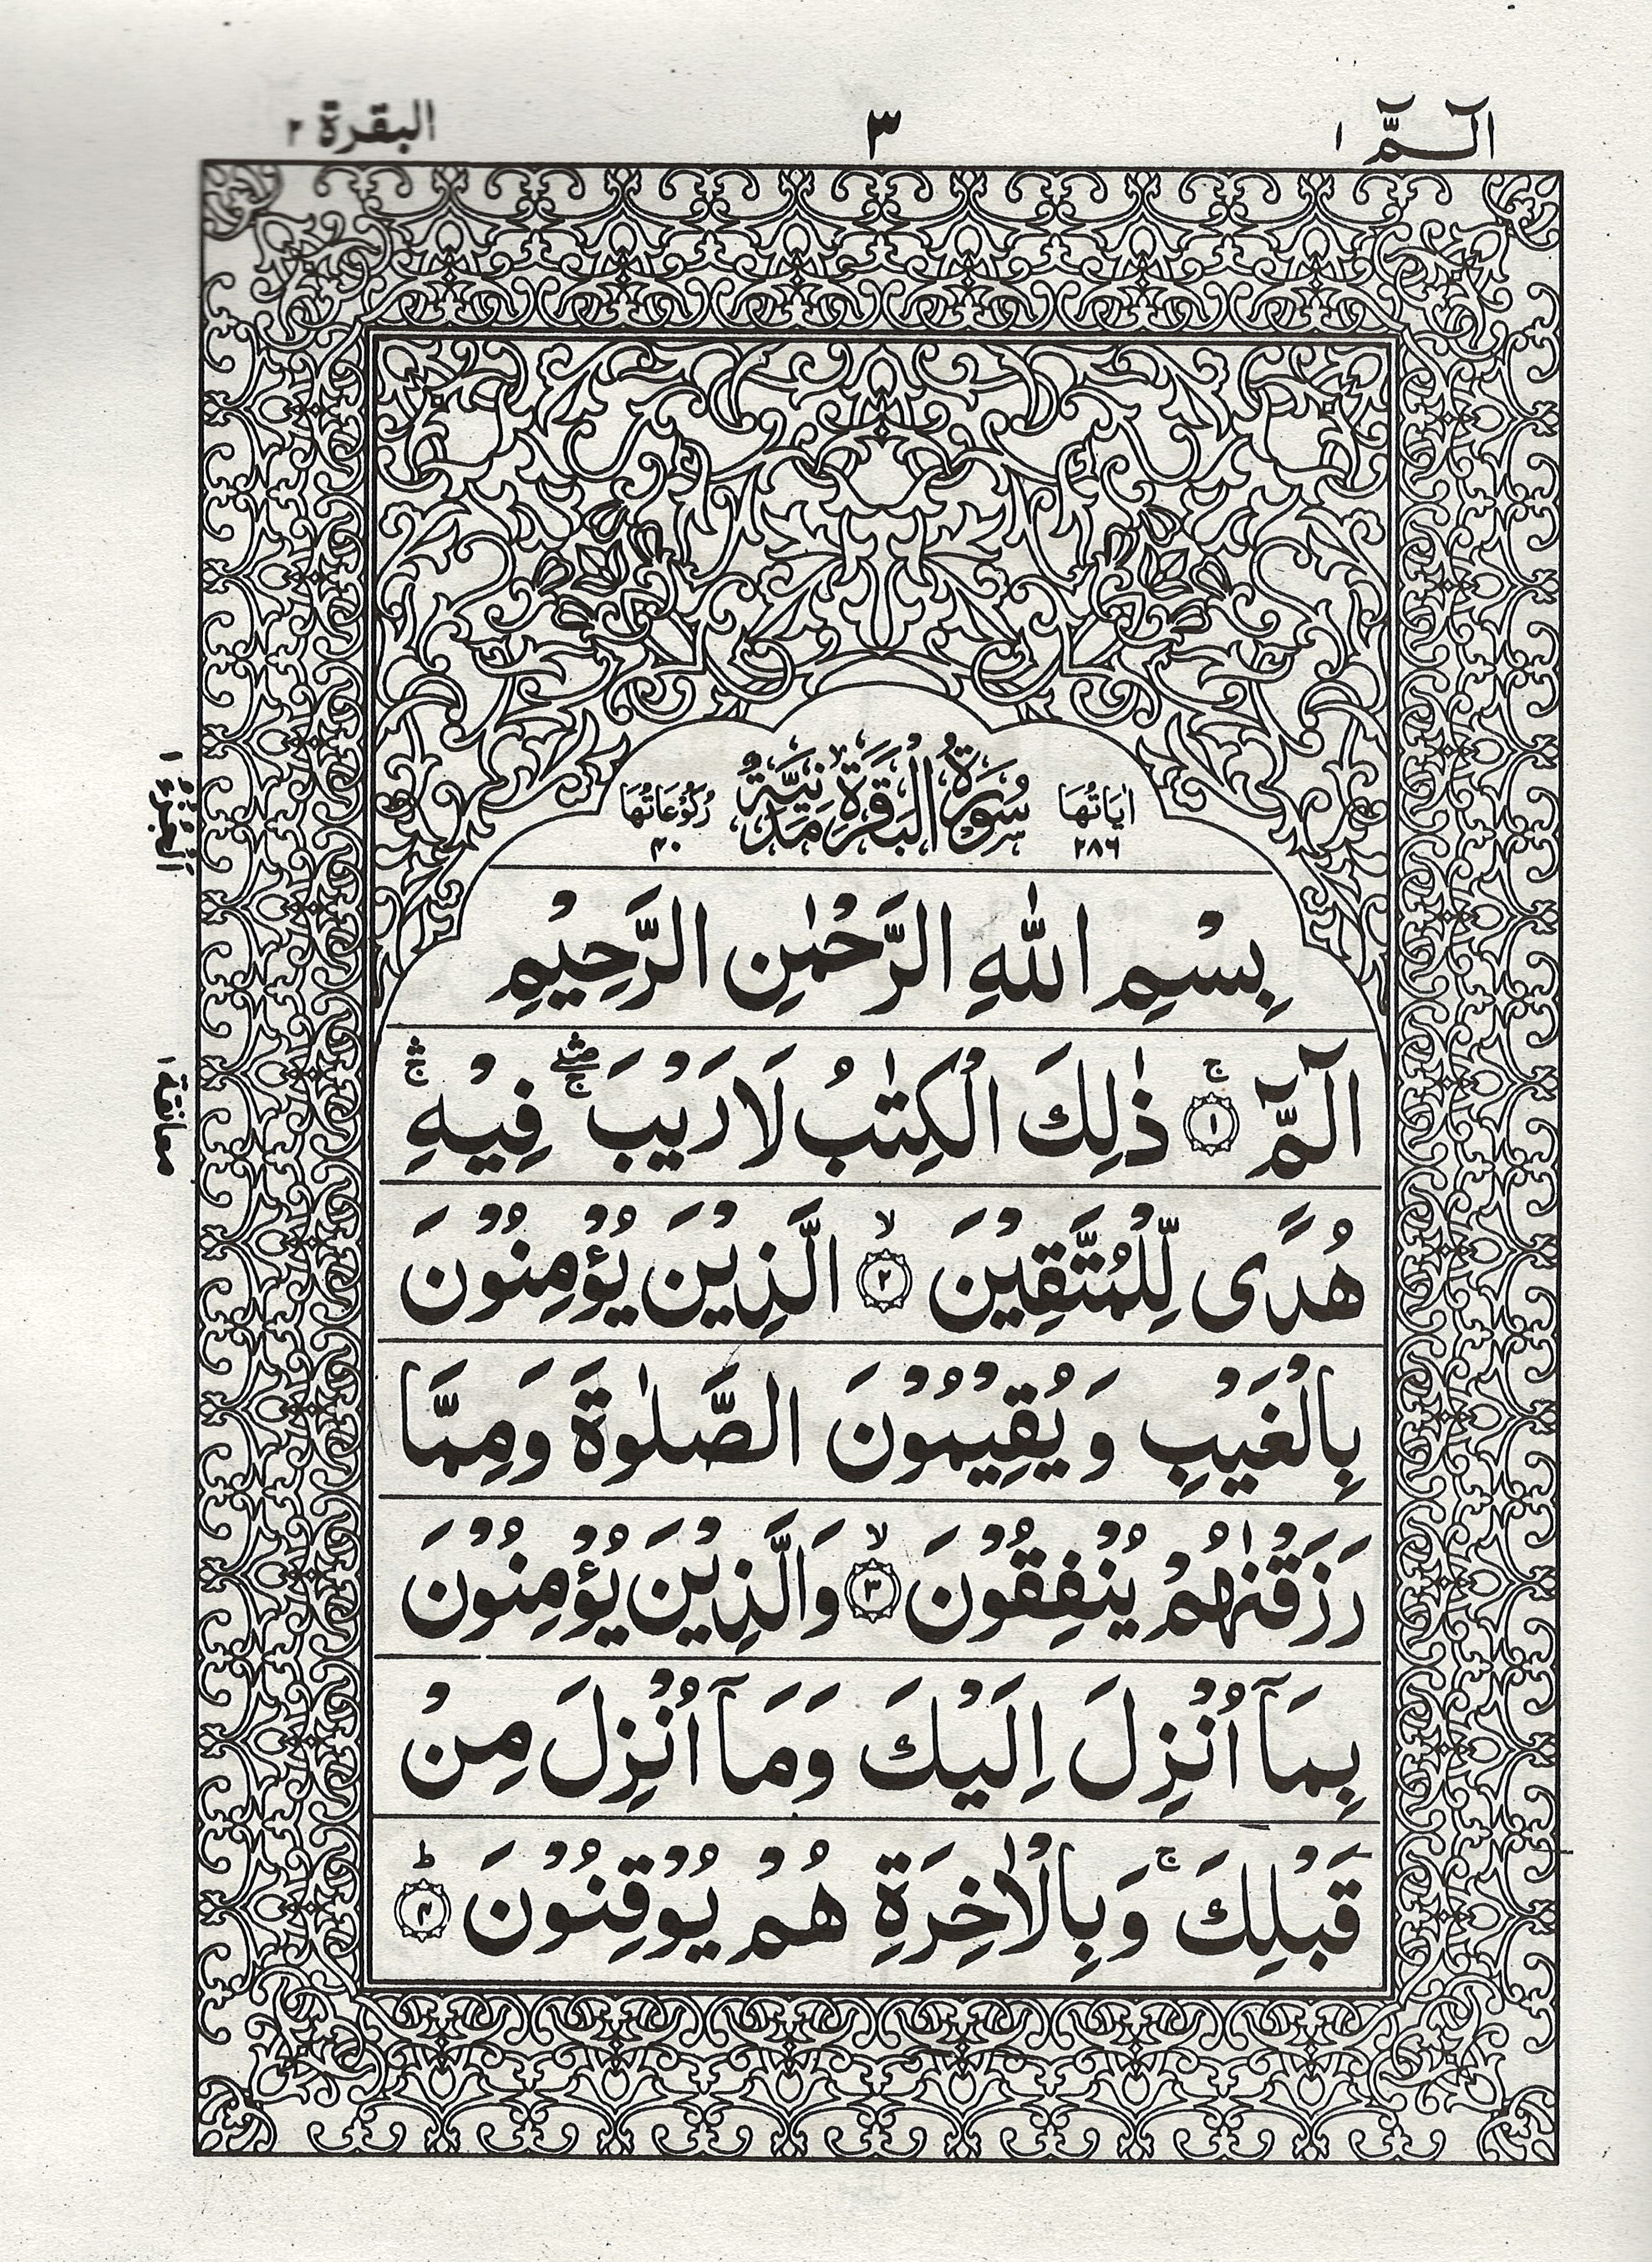 الٓـمّٓ ١
٣
البقرة ٢
اٰيَاتُهَا ٢٨٦
سُوْرَةُ الْبَقَرَةِ مَدَنِيَّةٌ
رُكُوْعَاتُهَا ٤٠
بِسْمِ اللّٰهِ الرَّحْمٰنِ الرَّحِيْمِ
الٓمّٓ ۚ ﴿١﴾ ذٰلِكَ الْكِتٰبُ لَا رَيْبَ ۖۚۛ فِيْهِ ۚۛ
هُدًى لِّلْمُتَّقِيْنَ ۙ ﴿٢﴾ الَّذِيْنَ يُؤْمِنُوْنَ
بِالْغَيْبِ وَيُقِيْمُوْنَ الصَّلٰوةَ وَمِمَّا
رَزَقْنٰهُمْ يُنْفِقُوْنَ ۙ ﴿٣﴾ وَالَّذِيْنَ يُؤْمِنُوْنَ
بِمَآ اُنْزِلَ اِلَيْكَ وَمَآ اُنْزِلَ مِنْ
قَبْلِكَ ۚ وَبِالْاٰخِرَةِ هُمْ يُوْقِنُوْنَ ؕ ﴿٤﴾
اَلْجُزْءُ ١
معانقة ١